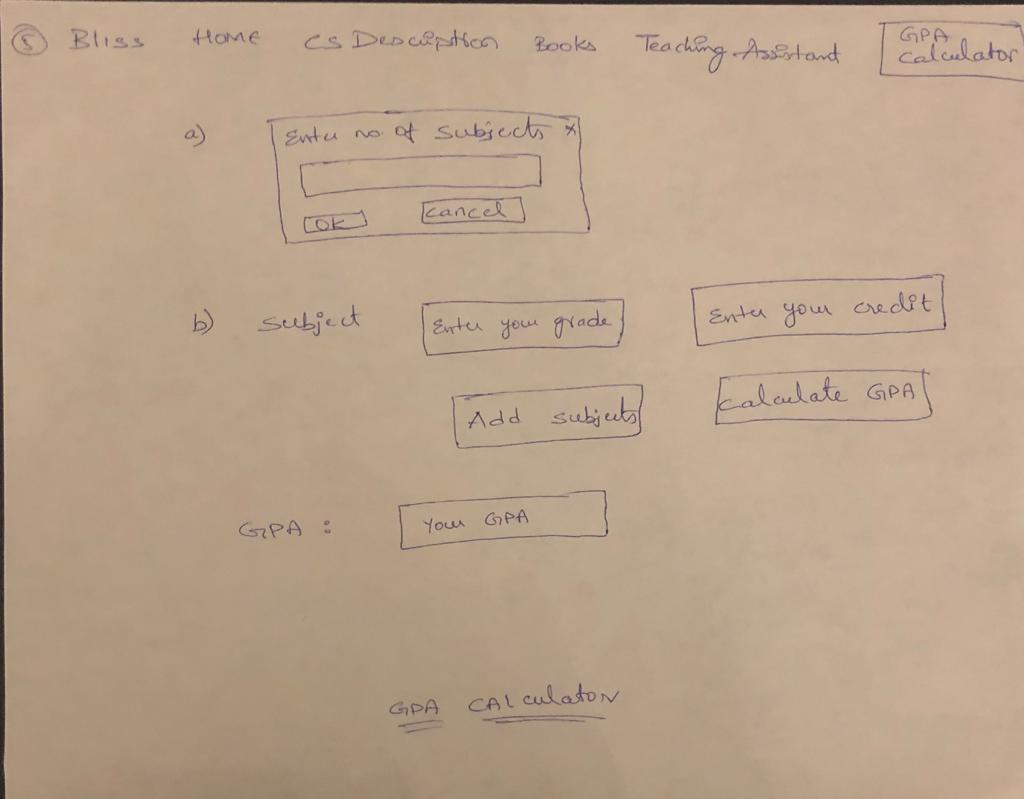 5 Bliss Home CS Description Books Teaching Assistant GPA Calculator
a) Enter no. of Subjects x
OK Cancel
b) Subject Enter your grade Enter your credit
Add subjects Calculate GPA
GPA : Your GPA
GPA CALculator